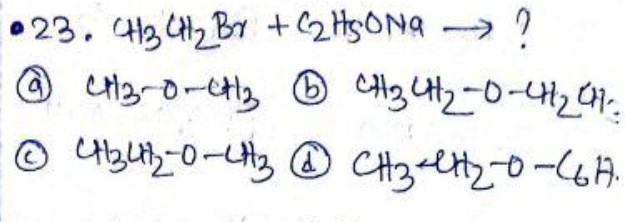 •23. CH3CH2Br + C2H5ONa → ?
ⓐ CH3-O-CH3 ⓑ CH3CH2-O-CH2CH
ⓒ CH3CH2-O-CH3 ⓓ CH3-CH2-O-C6H